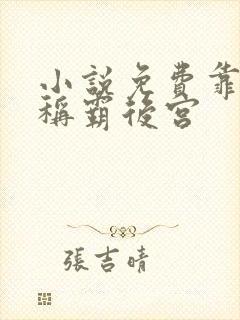 小說免費靠
稱霸後宮
張吉晴